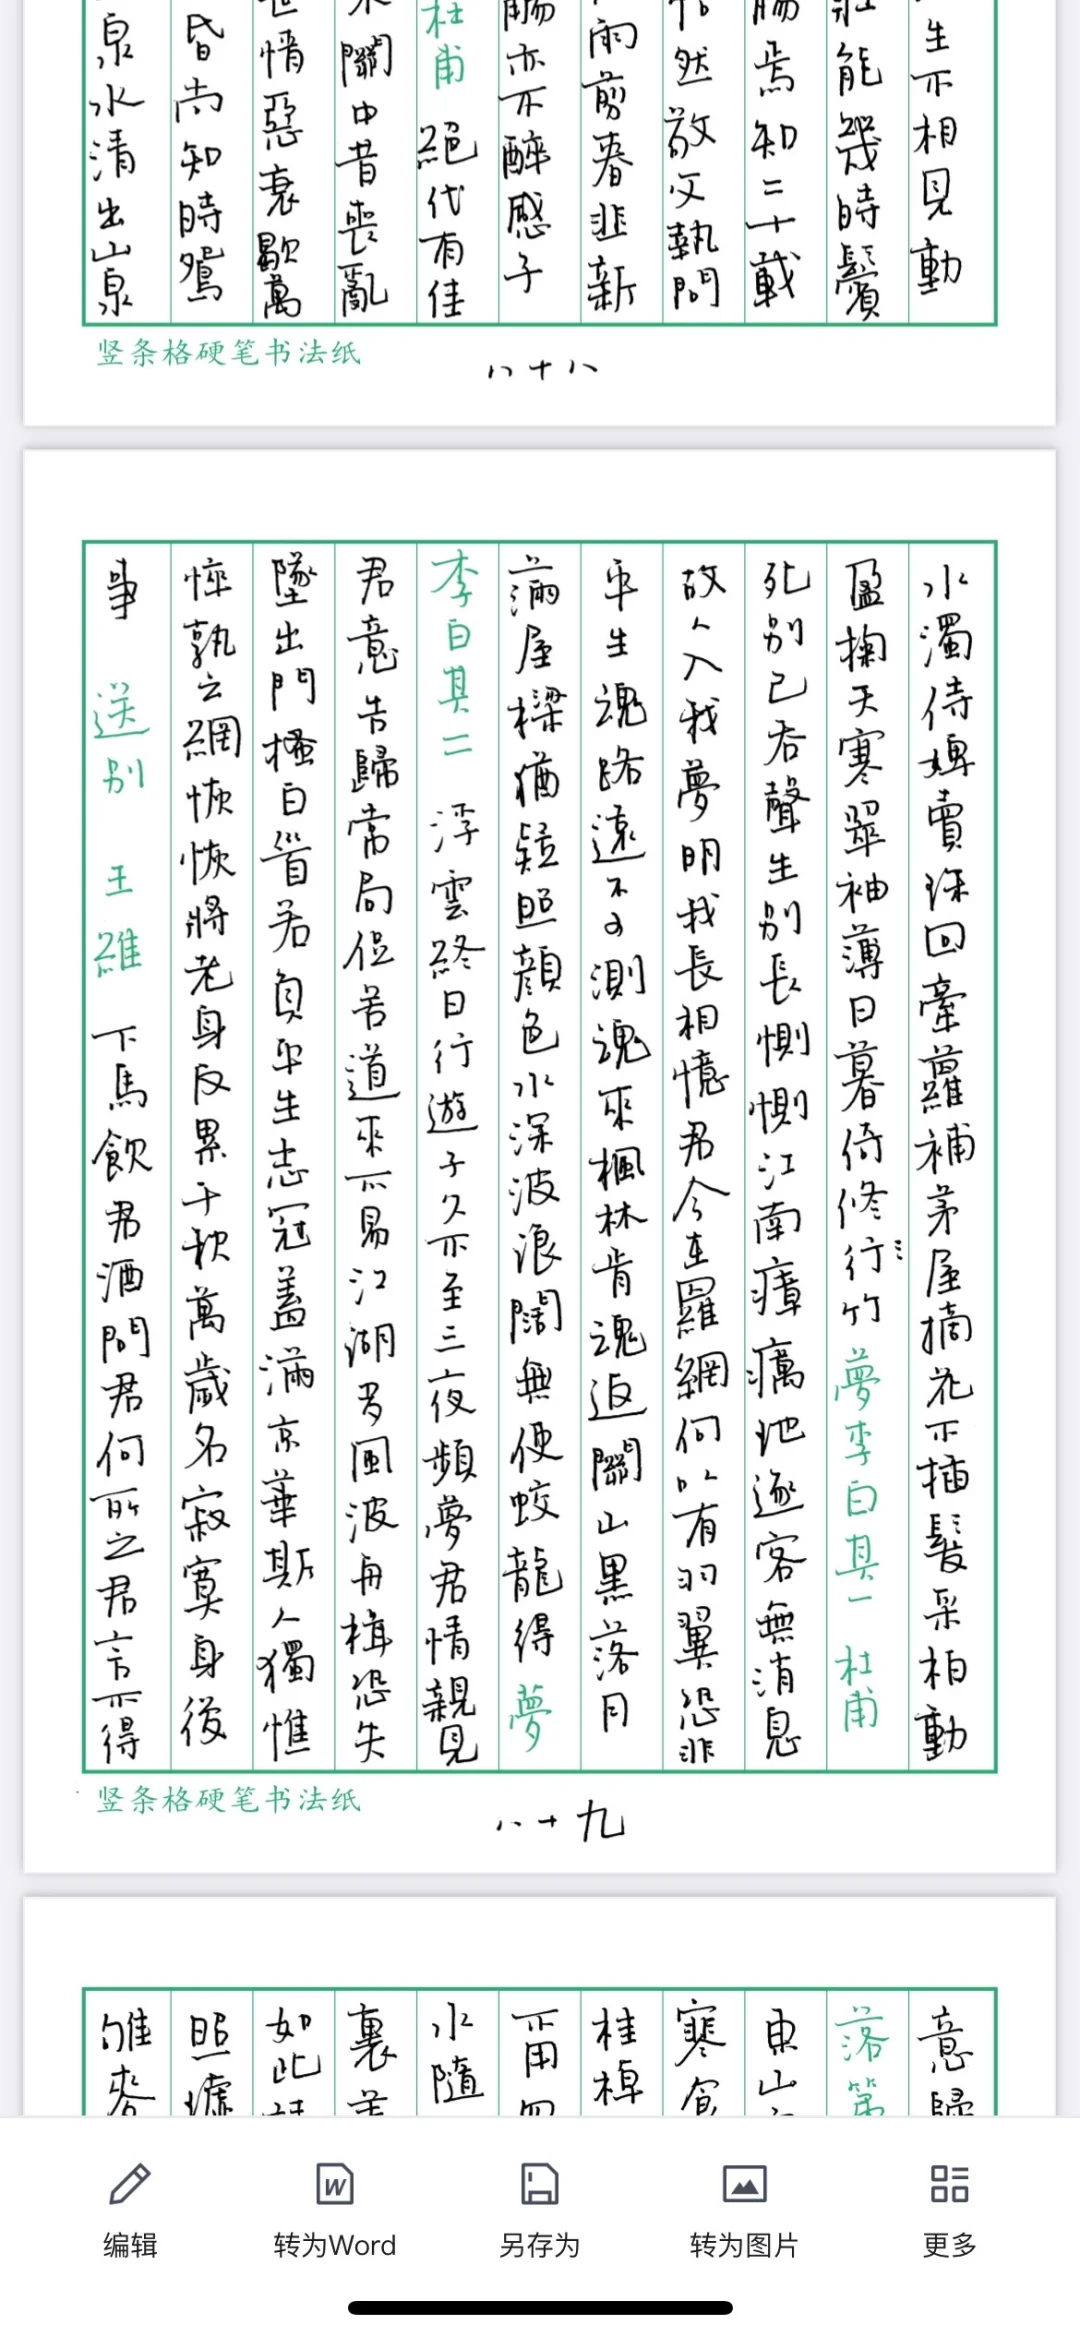 生不相見動
壯能幾時鬢
腸焉知二十載
怡然敬父執問
雨剪春韭新
觴亦不醉感子
杜甫 絕代有佳
關中昔喪亂
世情惡衰歇萬
昏尚知時鴛
泉水清出山泉
竖条格硬笔书法纸
八十八
水濁侍婢賣珠回牽蘿補茅屋摘花不插髮采柏動
盈掬天寒翠袖薄日暮倚修行竹 夢李白其一 杜甫
死別已吞聲生別長惻惻江南瘴癘地逐客無消息
故人入我夢明我長相憶君今在羅網何以有羽翼恐非
平生魂路遠不可測魂來楓林青魂返關山黑落月
滿屋樑猶疑照顏色水深波浪闊無使蛟龍得 夢
李白其二 浮雲終日行遊子久不至三夜頻夢君情親見
君意告歸常局促苦道來不易江湖多風波舟楫恐失
墜出門搔白首若負平生志冠蓋滿京華斯人獨憔
悴孰云網恢恢將老身反累千秋萬歲名寂寞身後
事 送別 王維 下馬飲君酒問君何所之君言不得
竖条格硬笔书法纸
八十九
意歸
落第
東山
寒食
桂棹
不用
水隨
裏
如此
照墟
雊麥
编辑 转为Word 另存为 转为图片 更多